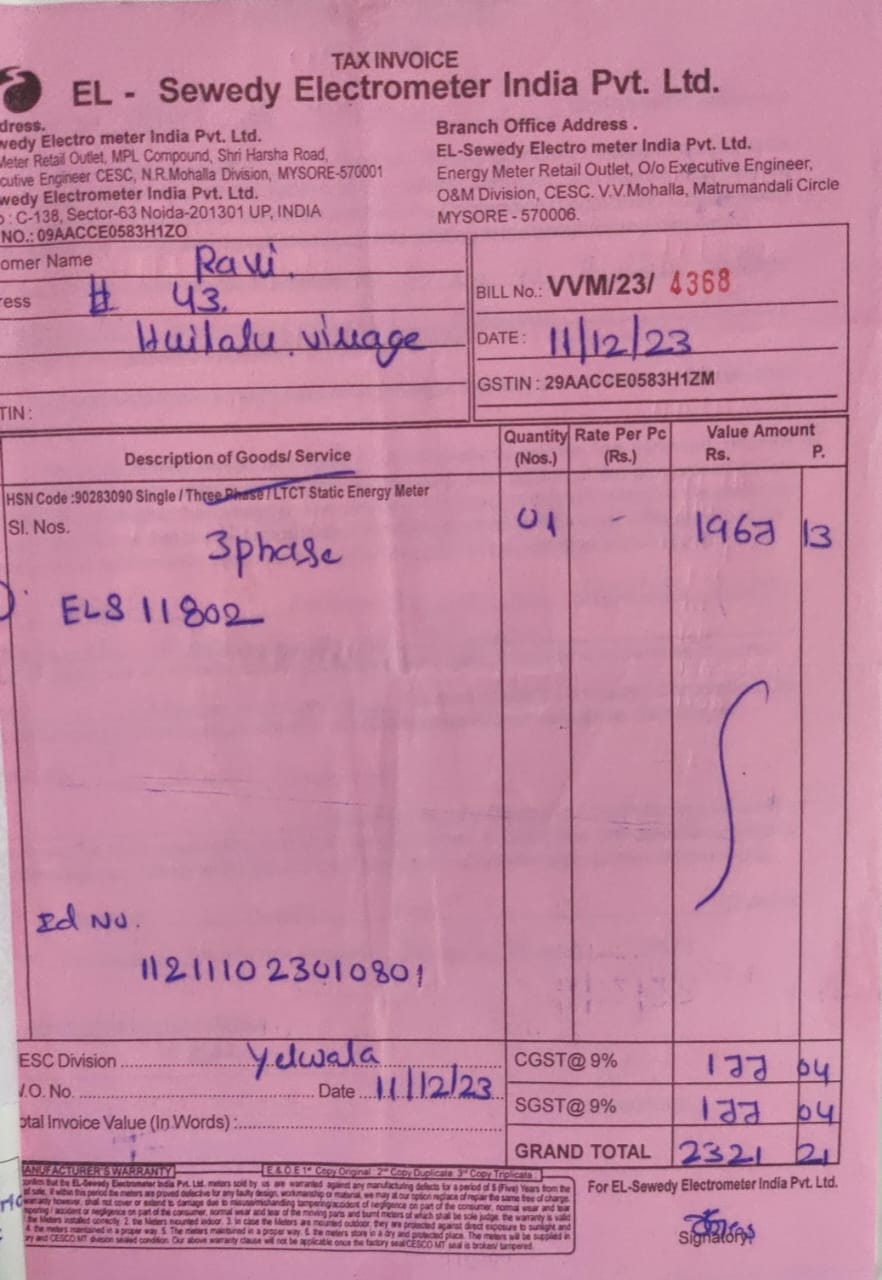 TAX INVOICE
EL - Sewedy Electrometer India Pvt. Ltd.
dress.
wedy Electro meter India Pvt. Ltd.
Meter Retail Outlet, MPL Compound, Shri Harsha Road,
cutive Engineer CESC, N.R.Mohalla Division, MYSORE-570001
wedy Electrometer India Pvt. Ltd.
: C-138, Sector-63 Noida-201301 UP, INDIA
NO.: 09AACCE0583H1ZO
Branch Office Address .
EL-Sewedy Electro meter India Pvt. Ltd.
Energy Meter Retail Outlet, O/o Executive Engineer,
O&M Division, CESC. V.V.Mohalla, Matrumandali Circle
MYSORE - 570006.
omer Name Ravi.
ress # 43.
Huilalu. village
TIN :
BILL No.: VVM/23/ 4368
DATE : 11/12/23
GSTIN : 29AACCE0583H1ZM
Description of Goods/ Service Quantity (Nos.) Rate Per Pc (Rs.) Value Amount Rs. P.
HSN Code :90283090 Single / Three Phase / LTCT Static Energy Meter
Sl. Nos.
3phase 01 - 1967 13
ELS 11802
Ed No.
11211102301 0801
ESC Division Yelwala
V.O. No. Date 11/12/23
otal Invoice Value (In Words) :
CGST@ 9% 177 04
SGST@ 9% 177 04
GRAND TOTAL 2321 21
MANUFACTURER'S WARRANTY
E & O E 1st Copy Original 2nd Copy Duplicate 3rd Copy Triplicate :
For EL-Sewedy Electrometer India Pvt. Ltd.
Signatory